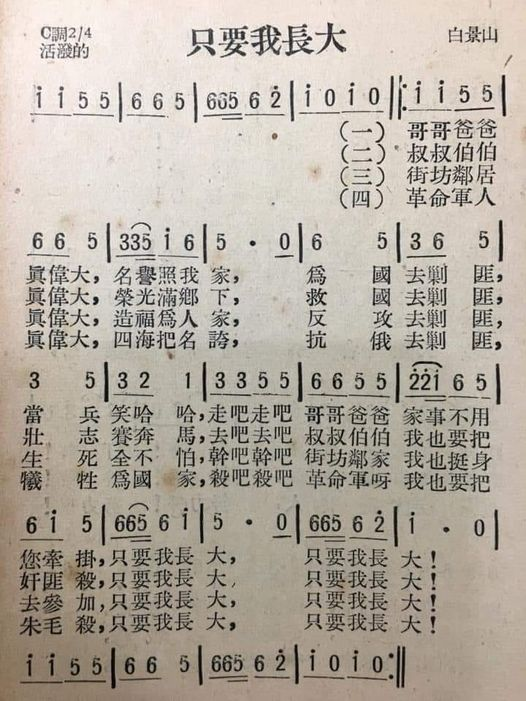 C調2/4 只要我長大 白景山
活潑的
i i 5 5 | 6 6 5 | 6 6 5 6 2̇ | i 0 i 0 ‖: i i 5 5 |
(一) 哥哥爸爸
(二) 叔叔伯伯
(三) 街坊鄰居
(四) 革命軍人
6 6 5 | 3 3 5 i 6 | 5 · 0 | 6 5 | 3 6 5 |
眞偉大, 名譽照我家, 爲國去剿匪,
眞偉大, 榮光滿鄉下, 救國去剿匪,
眞偉大, 造福爲人家, 反攻去剿匪,
眞偉大, 四海把名誇, 抗俄去剿匪,
3 5 | 3 2 1 | 3 3 5 5 | 6 6 5 5 | 2̇ 2̇ i 6 5 |
當兵笑哈哈, 走吧走吧哥哥爸爸家事不用
壯志賽奔馬, 去吧去吧叔叔伯伯我也要把
生死全不怕, 幹吧幹吧街坊鄰家我也挺身
犧牲爲國家, 殺吧殺吧革命軍呀我也要把
6 i 5 | 6 6 5 6 i | 5 · 0 | 6 6 5 6 2̇ | i · 0 |
您牽掛, 只要我長大, 只要我長大!
奸匪殺, 只要我長大, 只要我長大!
去參加, 只要我長大, 只要我長大!
朱毛殺, 只要我長大, 只要我長大!
i i 5 5 | 6 6 5 | 6 6 5 6 2̇ | i 0 i 0 :‖